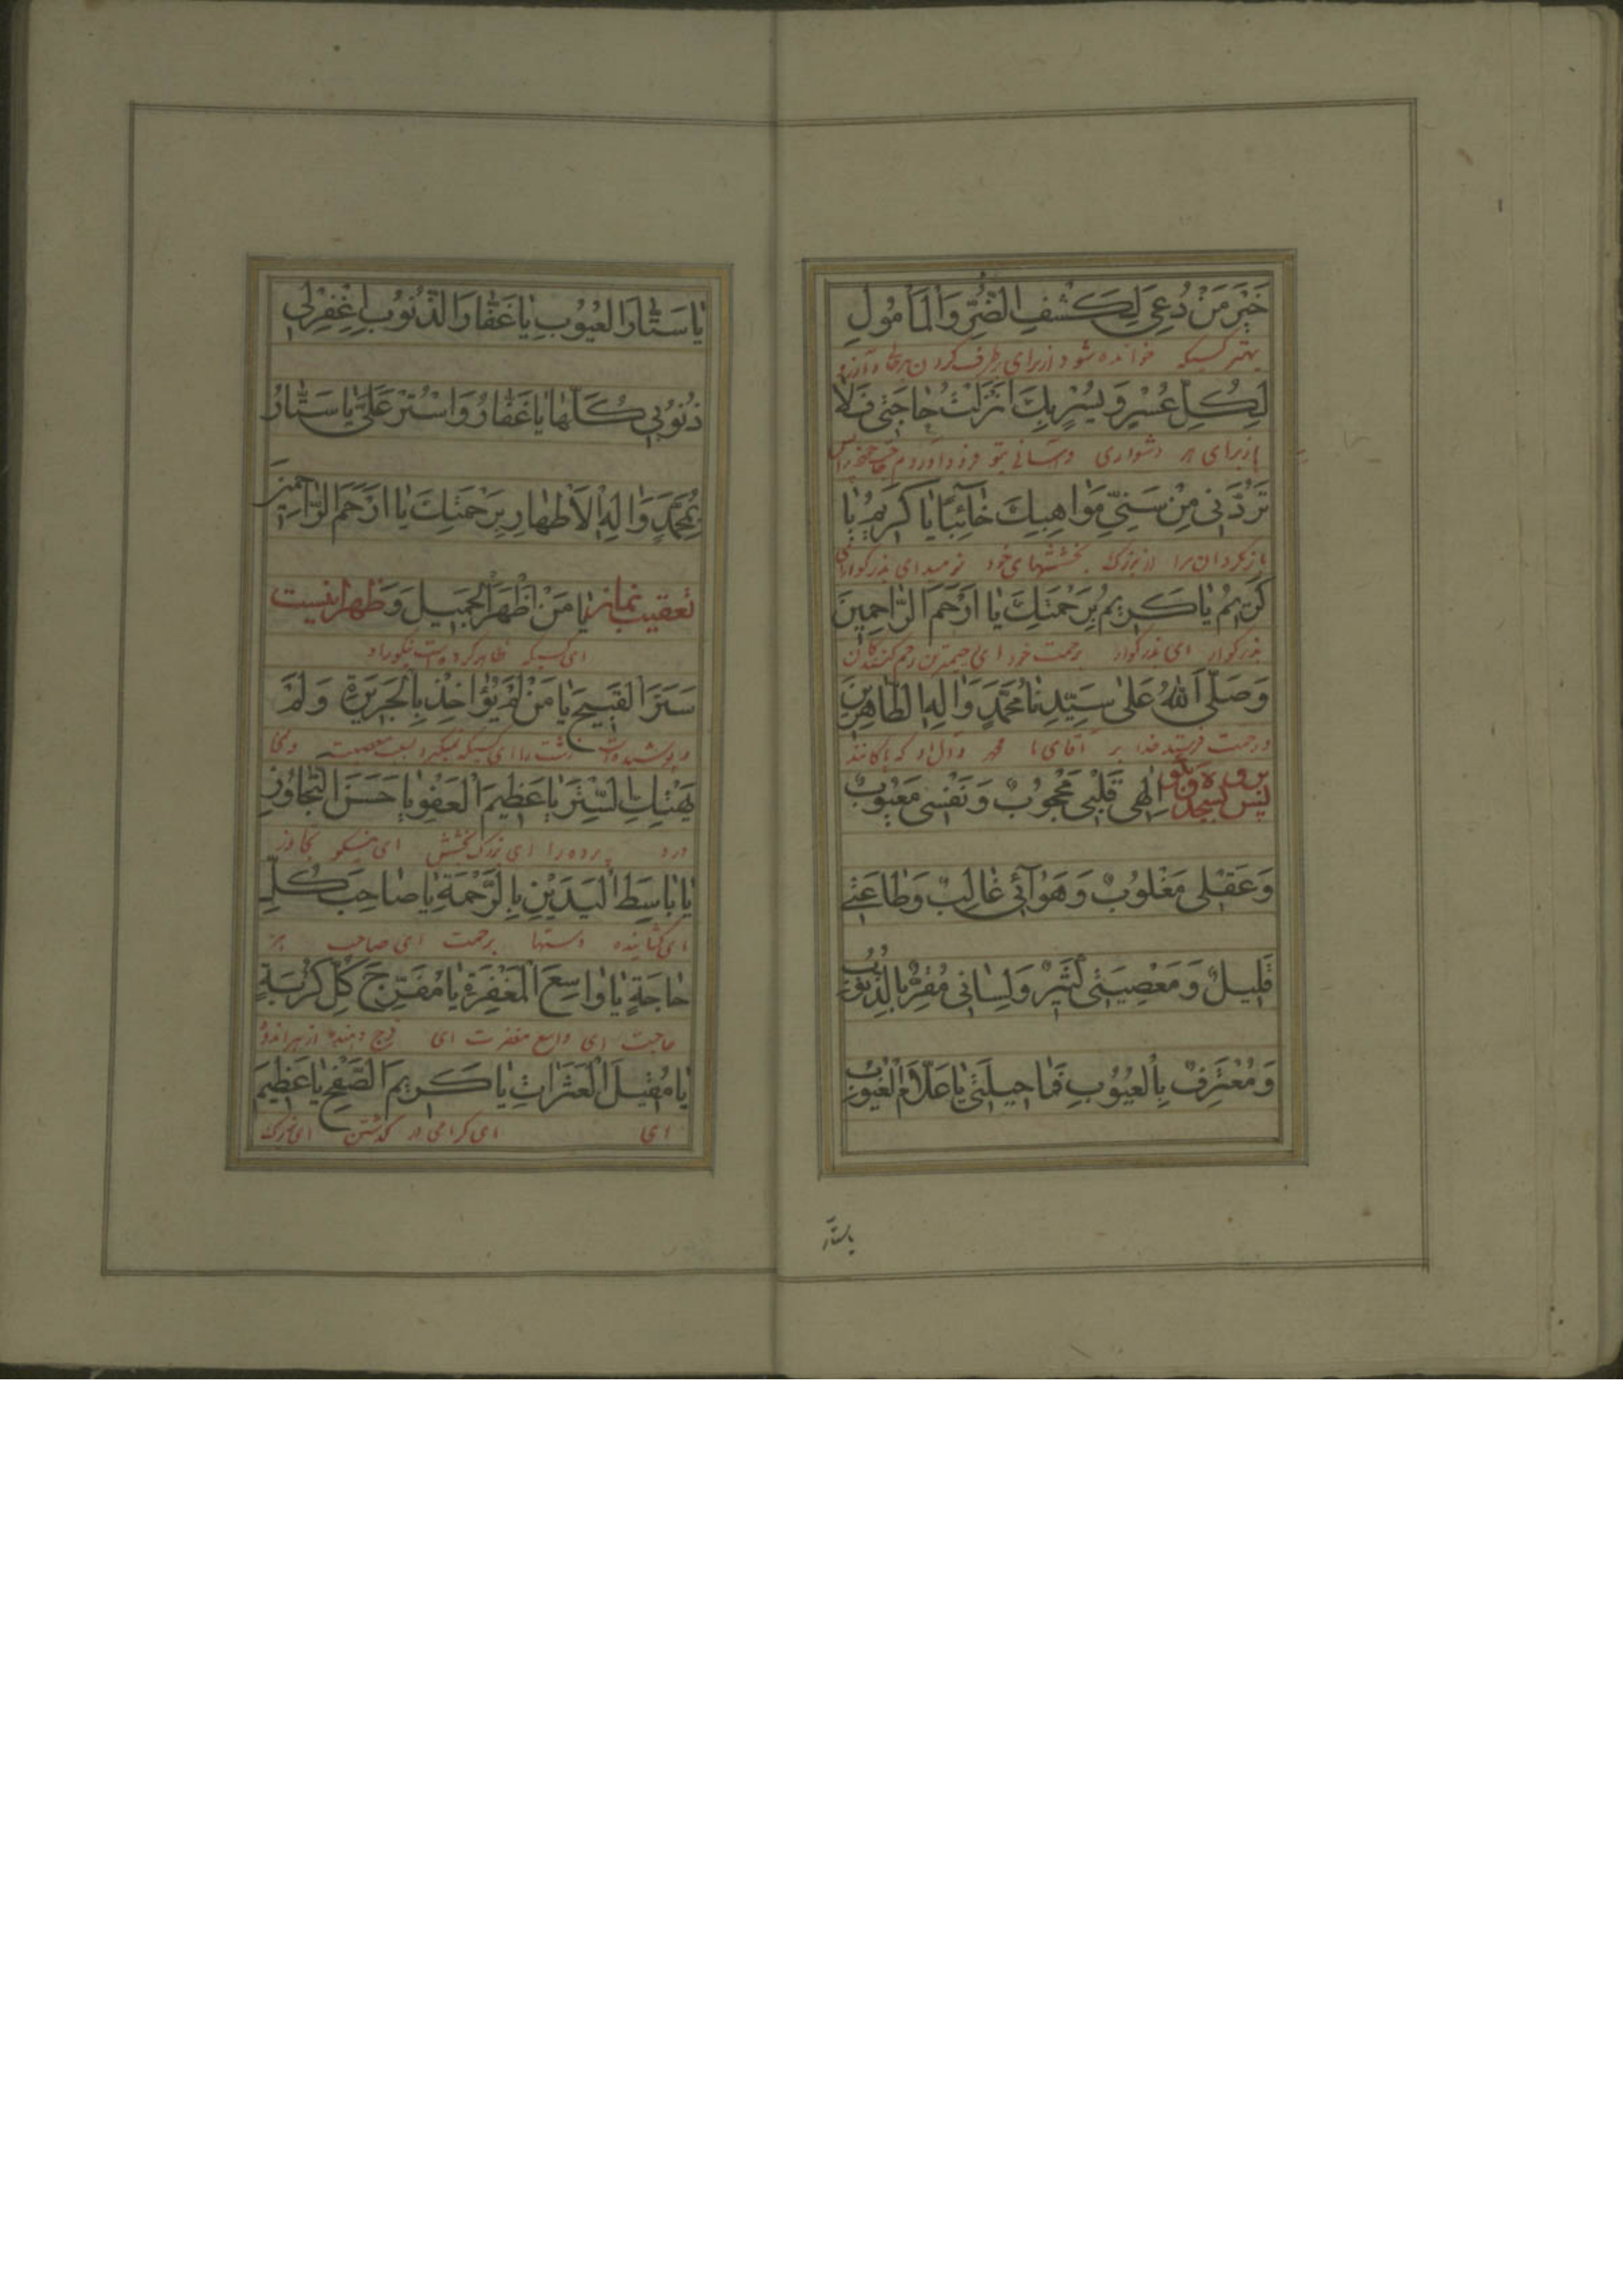 خَيْرَ مَنْ دُعِيَ لِكَشْفِ الضُّرِّ وَالْمَأْمُولِ
بهتر کسیکه خوانده شود از برای برطرف کردن
لِكُلِّ عُسْرٍ وَيُسْرٍ بِكَ اَنْزَلْتُ حٰاجَتِي فَلٰا
از برای هر دشواری و آسانی بتو فرود آوردم
تَرُدَّنِي مِنْ سَنِيِّ مَوٰاهِبِكَ خٰائِبًا يٰا كَرِيمُ يٰا
باز نگردان مرا از بزرگ بخششهای خود نومید ای بزرگوار ای
كَرِيمُ يٰا كَرِيمُ بِرَحْمَتِكَ يٰا اَرْحَمَ الرّٰاحِمِينَ
بزرگوار ای بزرگوار برحمت خود ای رحیمترین رحم کنندگان
وَصَلَّى اللهُ عَلىٰ سَيِّدِنٰا مُحَمَّدٍ وَاٰلِهِ الطّٰاهِرِينَ
و رحمت فرستد خدا بر آقای ما محمد و آل او که پاکانند
پس بسجده رو و بگو اِلٰهِي قَلْبِي مَحْجُوبٌ وَنَفْسِي مَعْيُوبٌ
وَعَقْلِي مَغْلُوبٌ وَهَوٰآئِي غٰالِبٌ وَطٰاعَتِي
قَلِيلٌ وَمَعْصِيَتِي كَثِيرٌ وَلِسٰانِي مُقِرٌّ بِالذُّنُوبِ
وَمُعْتَرِفٌ بِالْعُيُوبِ فَمٰا حِيلَتِي يٰا عَلّٰامَ الْغُيُوبِ
یا ستار
يٰا سَتّٰارَ الْعُيُوبِ يٰا غَفّٰارَ الذُّنُوبِ اِغْفِرْ لِي
ذُنُوبِي كُلَّهٰا يٰا غَفّٰارُ وَاسْتُرْ عَلَيَّ يٰا سَتّٰارُ
بِمُحَمَّدٍ وَاٰلِهِ الْاَطْهٰارِ بِرَحْمَتِكَ يٰا اَرْحَمَ الرّٰاحِمِينَ
تعقیب نماز ظهر اینست يٰا مَنْ اَظْهَرَ الْجَمِيلَ وَ
ای کسیکه ظاهر کرده است نیکو را و
سَتَرَ الْقَبِيحَ يٰا مَنْ لَمْ يُؤٰاخِذْ بِالْجَرِيرَةِ وَلَمْ
و پوشیده است زشت را ای کسیکه نمیگیرد بسبب معصیت و
يَهْتِكِ السِّتْرَ يٰا عَظِيمَ الْعَفْوِ يٰا حَسَنَ التَّجٰاوُزِ
پرده را ای بزرگ بخشش ای نیکو تجاوز
يٰا بٰاسِطَ الْيَدَيْنِ بِالرَّحْمَةِ يٰا صٰاحِبَ كُلِّ
ای گشاینده دستها برحمت ای صاحب هر
حٰاجَةٍ يٰا وٰاسِعَ الْمَغْفِرَةِ يٰا مُفَرِّجَ كُلِّ كُرْبَةٍ
حاجت ای واسع مغفرت ای فرج دهنده از هر اندوه
يٰا مُقِيلَ الْعَثَرٰاتِ يٰا كَرِيمَ الصَّفْحِ يٰا عَظِيمَ
ای ای گرامی در گذشتن ای بزرگ